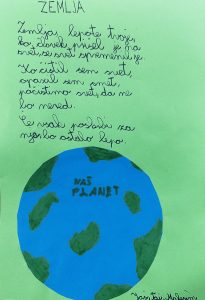 ZEMLJA
Zemlja, lepote tvoje,
ko človek prišel je na
svet, se svet spremenil je.
Ko čistil sem svet,
opazil sem smet,
počistimo svet, da ne
bo nered.
Če vsak poskrbi za
njesbo ostalo lepo.
NAŠ
PLANET